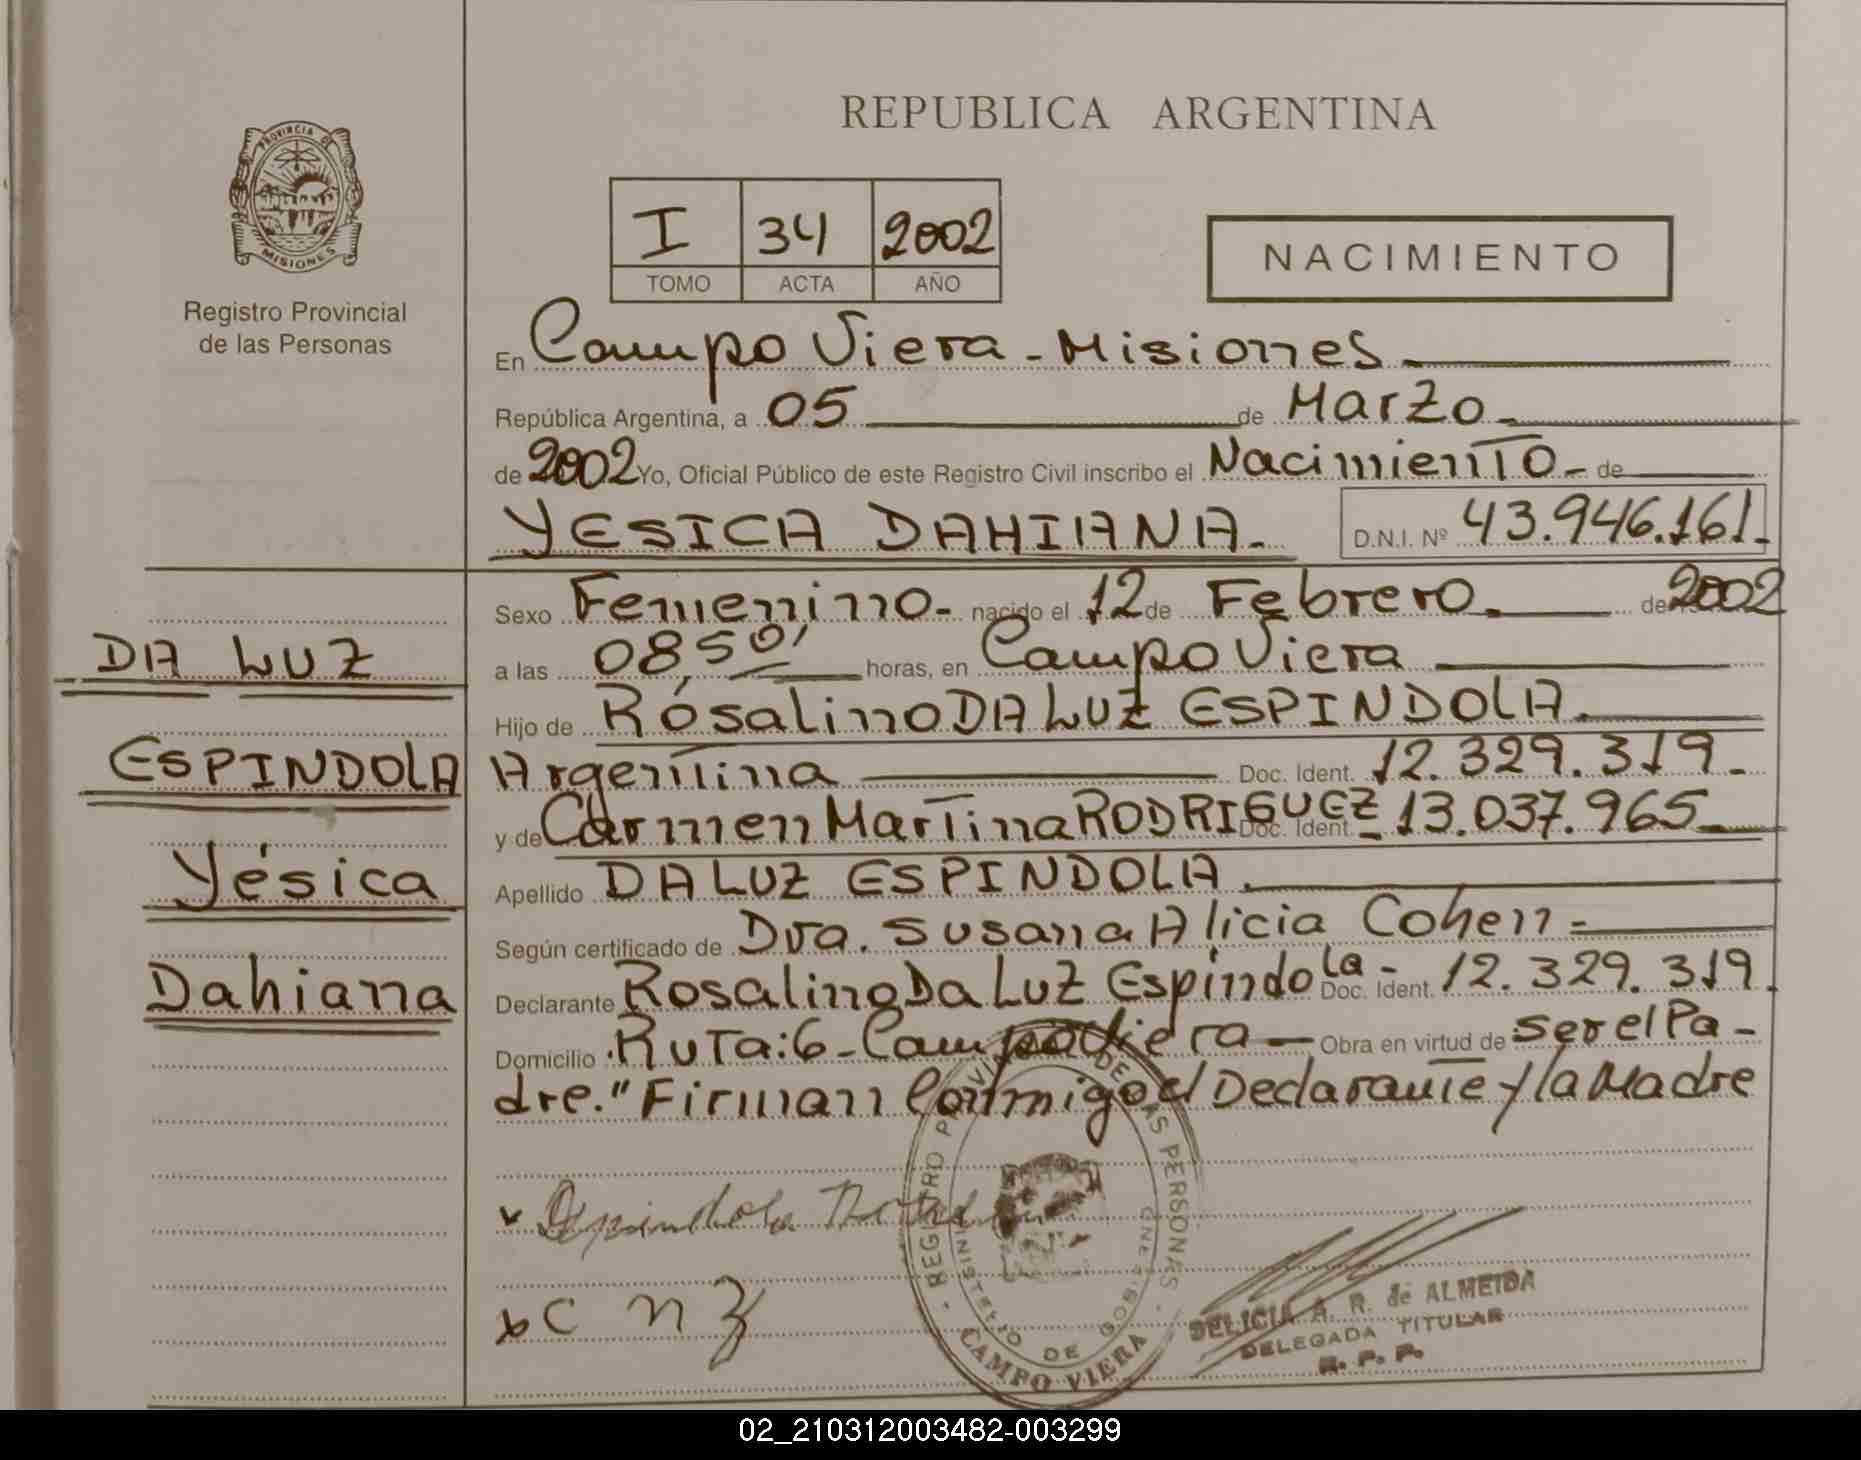 REPUBLICA ARGENTINA
PROVINCIA DE
MISIONES
Registro Provincial
de las Personas
I 34 2002
TOMO ACTA AÑO
NACIMIENTO
En Campo Viera - Misiones
República Argentina, a 05 de Marzo
de 2002 Yo, Oficial Público de este Registro Civil inscribo el Nacimiento - de
YESICA DAHIANA - D.N.I. Nº 43.946.161.-
Sexo Femenino - nacido el 12 de Febrero. de 2002
DA LUZ
a las 08,50' horas, en Campo Viera
Hijo de Rósalino DA LUZ ESPINDOLA.
ESPINDOLA
Argentina Doc. Ident. 12.329.319-
y de Carmen Martina RODRIGUEZ Doc. Ident. - 13.037.965
Yésica
Apellido DA LUZ ESPINDOLA.
Según certificado de Dra. Susana Alicia Cohen -
Dahiana
Declarante Rosalino Da Luz Espíndola - Doc. Ident. 12.329.319.
Domicilio Ruta: 6 - Campo Viera - Obra en virtud de ser el Pa-
dre." Firman Conmigo el Declarante y la Madre
Espindola
C M
REGISTRO PROVINCIAL DE LAS PERSONAS
MINISTERIO DE GOBIERNO
CAMPO VIERA
DELICIA A. R. de ALMEIDA
DELEGADA TITULAR
R. P. P.
02_210312003482-003299